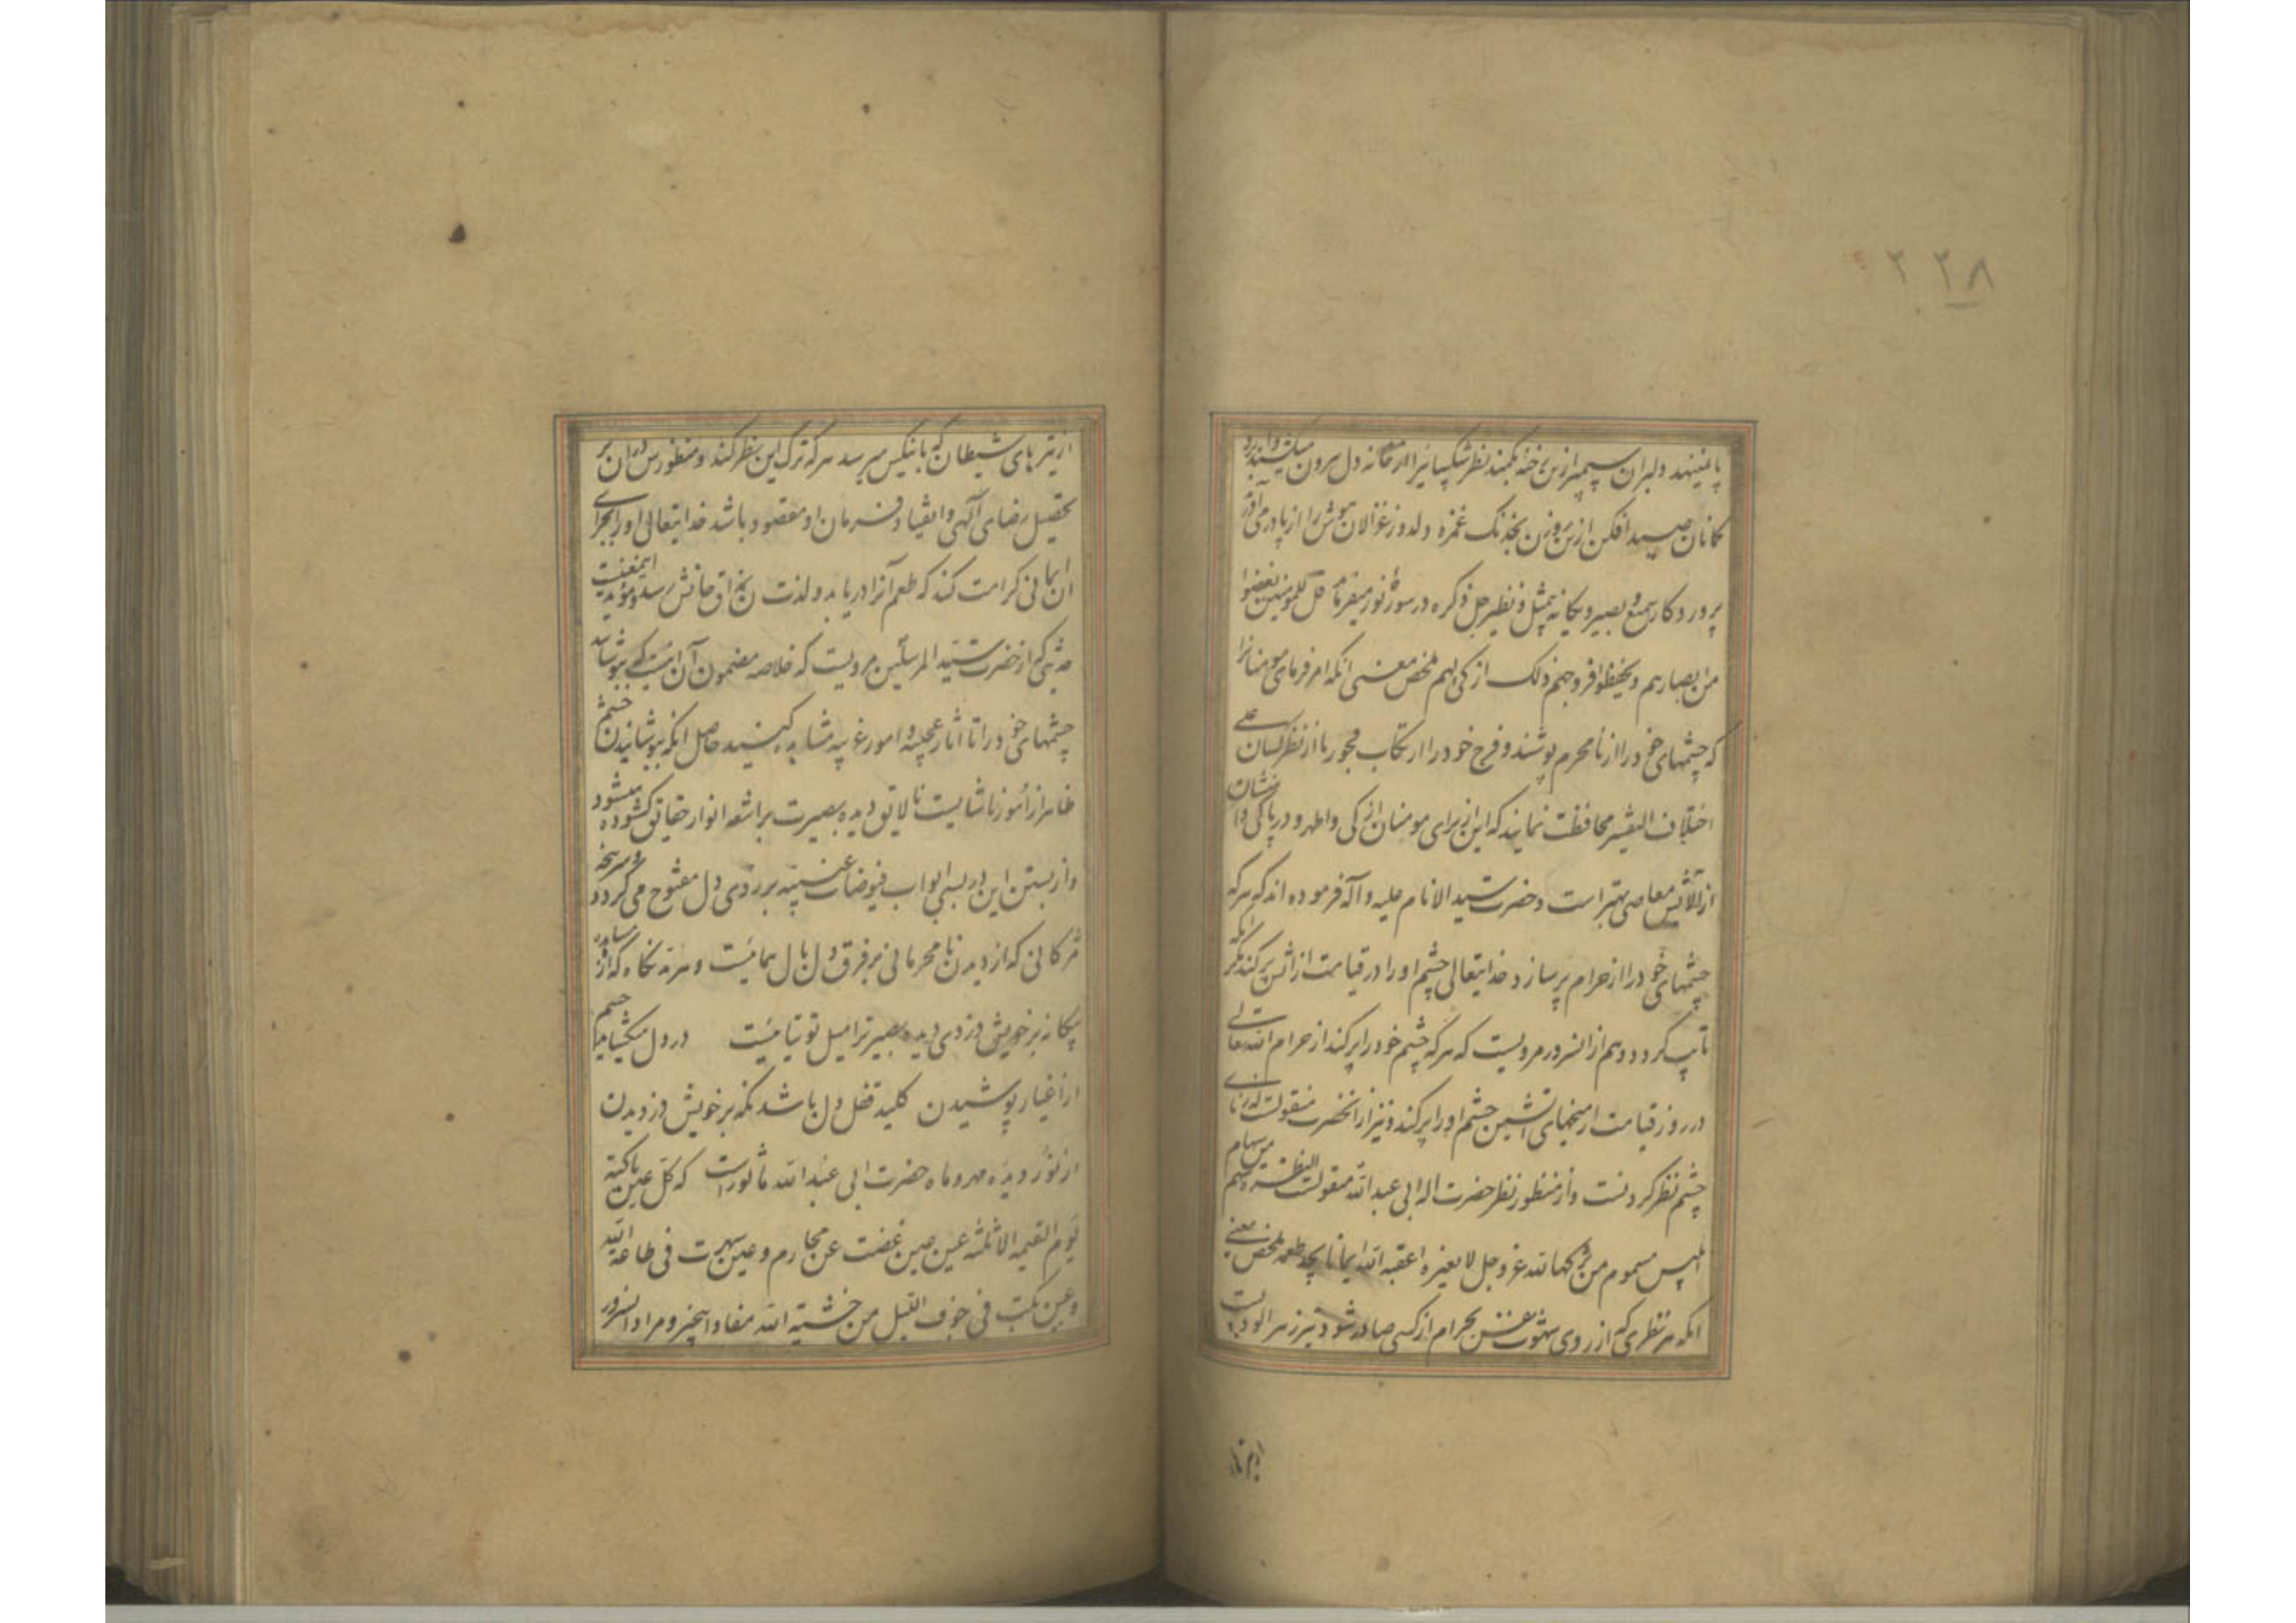 ۲۲۸
پا مینهد دلبران سیمبر ازین رخنه بکمند نظر شکیبائیرا از خانه دل بیرون میکشند و ابرو
کمانان صید افکن ازین روزن بخدنک غمزه دلدوز غزالان هوش را از پا در می آورد
پروردکار سمیع و بصیر و یکانه بیمثل و نظیر جل ذکره در سوره نور میفرماید قل للمومنین یغضوا
من ابصارهم و یحفظوا فروجهم ذلک ازکی لهم ملخص معنی انکه امر فرمای مومنانرا
که چشمهای خود را از نا محرم پوشند و فرج خود را از ارتکاب فجور یا از نظر کسان علی
اختلاف التفسیر محافظت نمایند که این از برای مومنان ازکی و اطهر و در پاکی دامنشان
از آلایش معاصی بهتر است و حضرت سید الانام علیه و آله فرموده اند که هر که
چشمهای خود را از حرام پر سازد خدایتعالی چشم او را در قیامت از اتش پر کند مکر انکه
تایب کردد و هم از انسرور مرویست که هر که چشم خود را پر کند از حرام الله تعالی
در روز قیامت از میخهای اتشین چشم او را پر کند و نیز از انحضرت منقولست که زنای
چشم نظر کردنست و از منظور نظر حضرت اله ابی عبد الله منقولست النظرة سهم من سهام
ابلیس مسموم من ترکها لله عز و جل لا لغیره اعقبه الله ایمانا یجد طعمه ملخص معنی
انکه هر نظری که از روی شهوت بحرام از کسی صادر شود تیر زهر الودیست
از تیرهای شیطان که بانکس میرسد هر که ترک این نظر کند و منظورش در ان بر
تحصیل رضای آلهی و انقیاد فرمان او مقصود باشد خدایتعالی او را بجزای
ان ایمانی کرامت کند که طعم آنرا دریابد و لذت ان بمذاق جانش رسد و موید اینمعنیست
حدیثی که از حضرت سید المرسلین مرویست که خلاصه مضمون آن اینست که بپوشانید
چشمهای خود را تا اثار عجیبه و امور غریبه مشاهده کنید حاصل انکه بپوشانیدن چشم
ظاهر از امور ناشایست نالایق دیده بصیرت بر اشعه انوار حقایق کشوده میشود
و از بستن این در بسی ابواب فیوضات غیبیه بر روی دل مفتوح می کردد و سر پنجه
مژکانی که از دیدن نامحرمانی بر فرق دل بال همائیست و هر مد نکاه که از مشاهده
بیکانه بر خویش دزدی دیده بصیرترا میل توتیائیست در دل میکشاید چشم
از اغیار پوشیدن کلید قفل دل باشد نکه بر خویش دزدیدن
از نور دیده مهر و ماه حضرت ابی عبد الله ماثورست که کل عین باکیة
یوم القیمه الا ثلثه عین غضت عن محارم و عین سهرت فی طاعة الله
و عین بکت فی جوف اللیل من خشیة الله مفاد این خبر و مراد انسرور